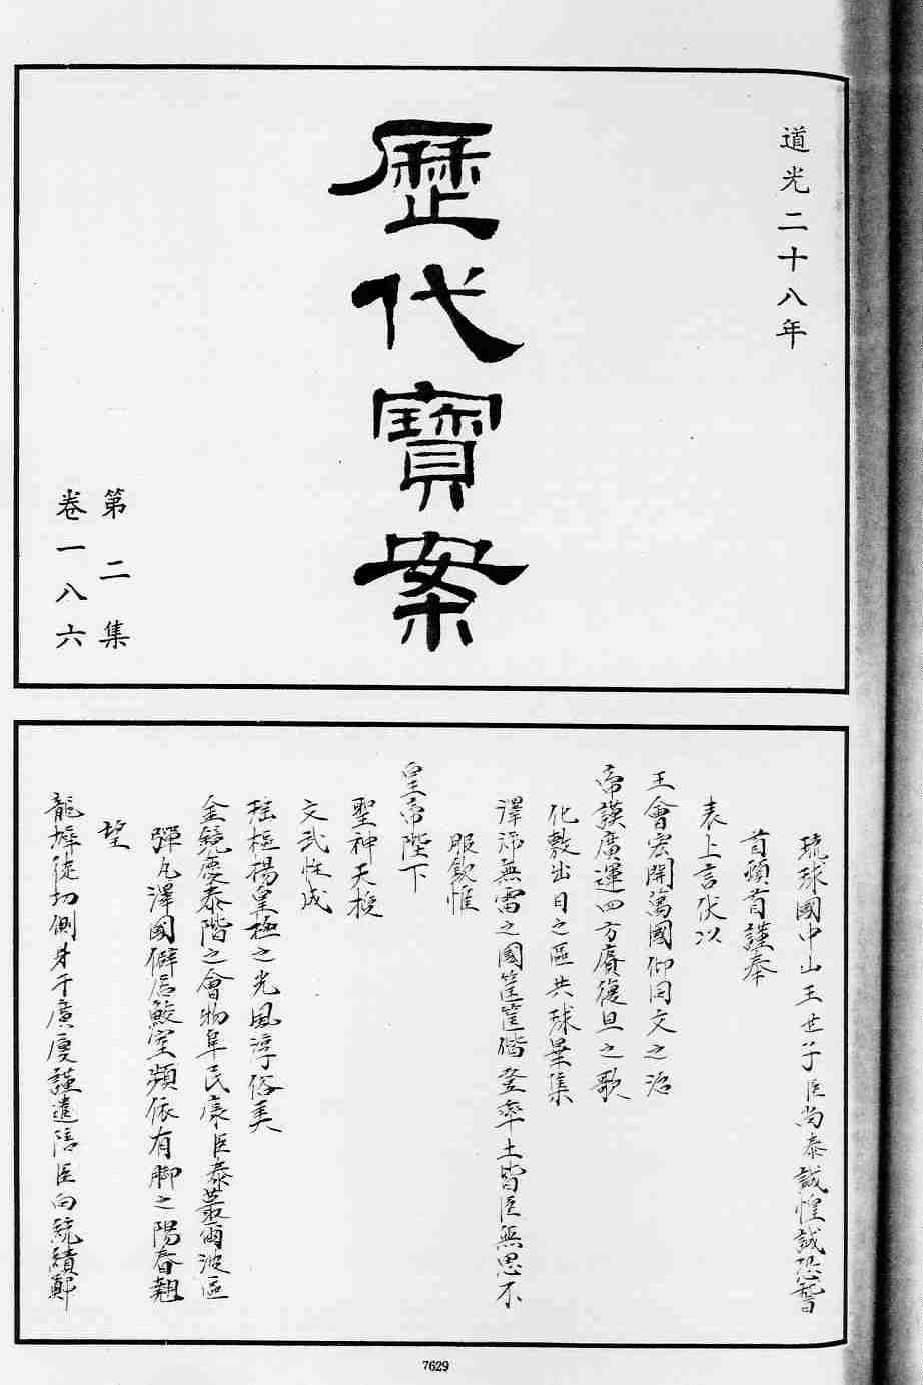 道光二十八年
歷代寶案
第二集
卷一八六
琉球國中山王世子臣尚泰誠惶誠恐稽
首頓首謹奉
表上言伏以
王會宏開萬國仰同文之治
帝謨廣運四方賡復旦之歌
化敷出日之區共球畢集
澤沛無雷之國筐篚偕登率土皆臣無思不
服欽惟
皇帝陛下
聖神天授
文武性成
瑤樞揚皇極之光風淳俗美
金鏡慶泰階之會物阜民康臣泰蕞爾波區
彈丸澤國僻居鮫室頻依有腳之陽春翹
望
龍墀徒切側身于廣廈謹遣陪臣向統績鄭
7629